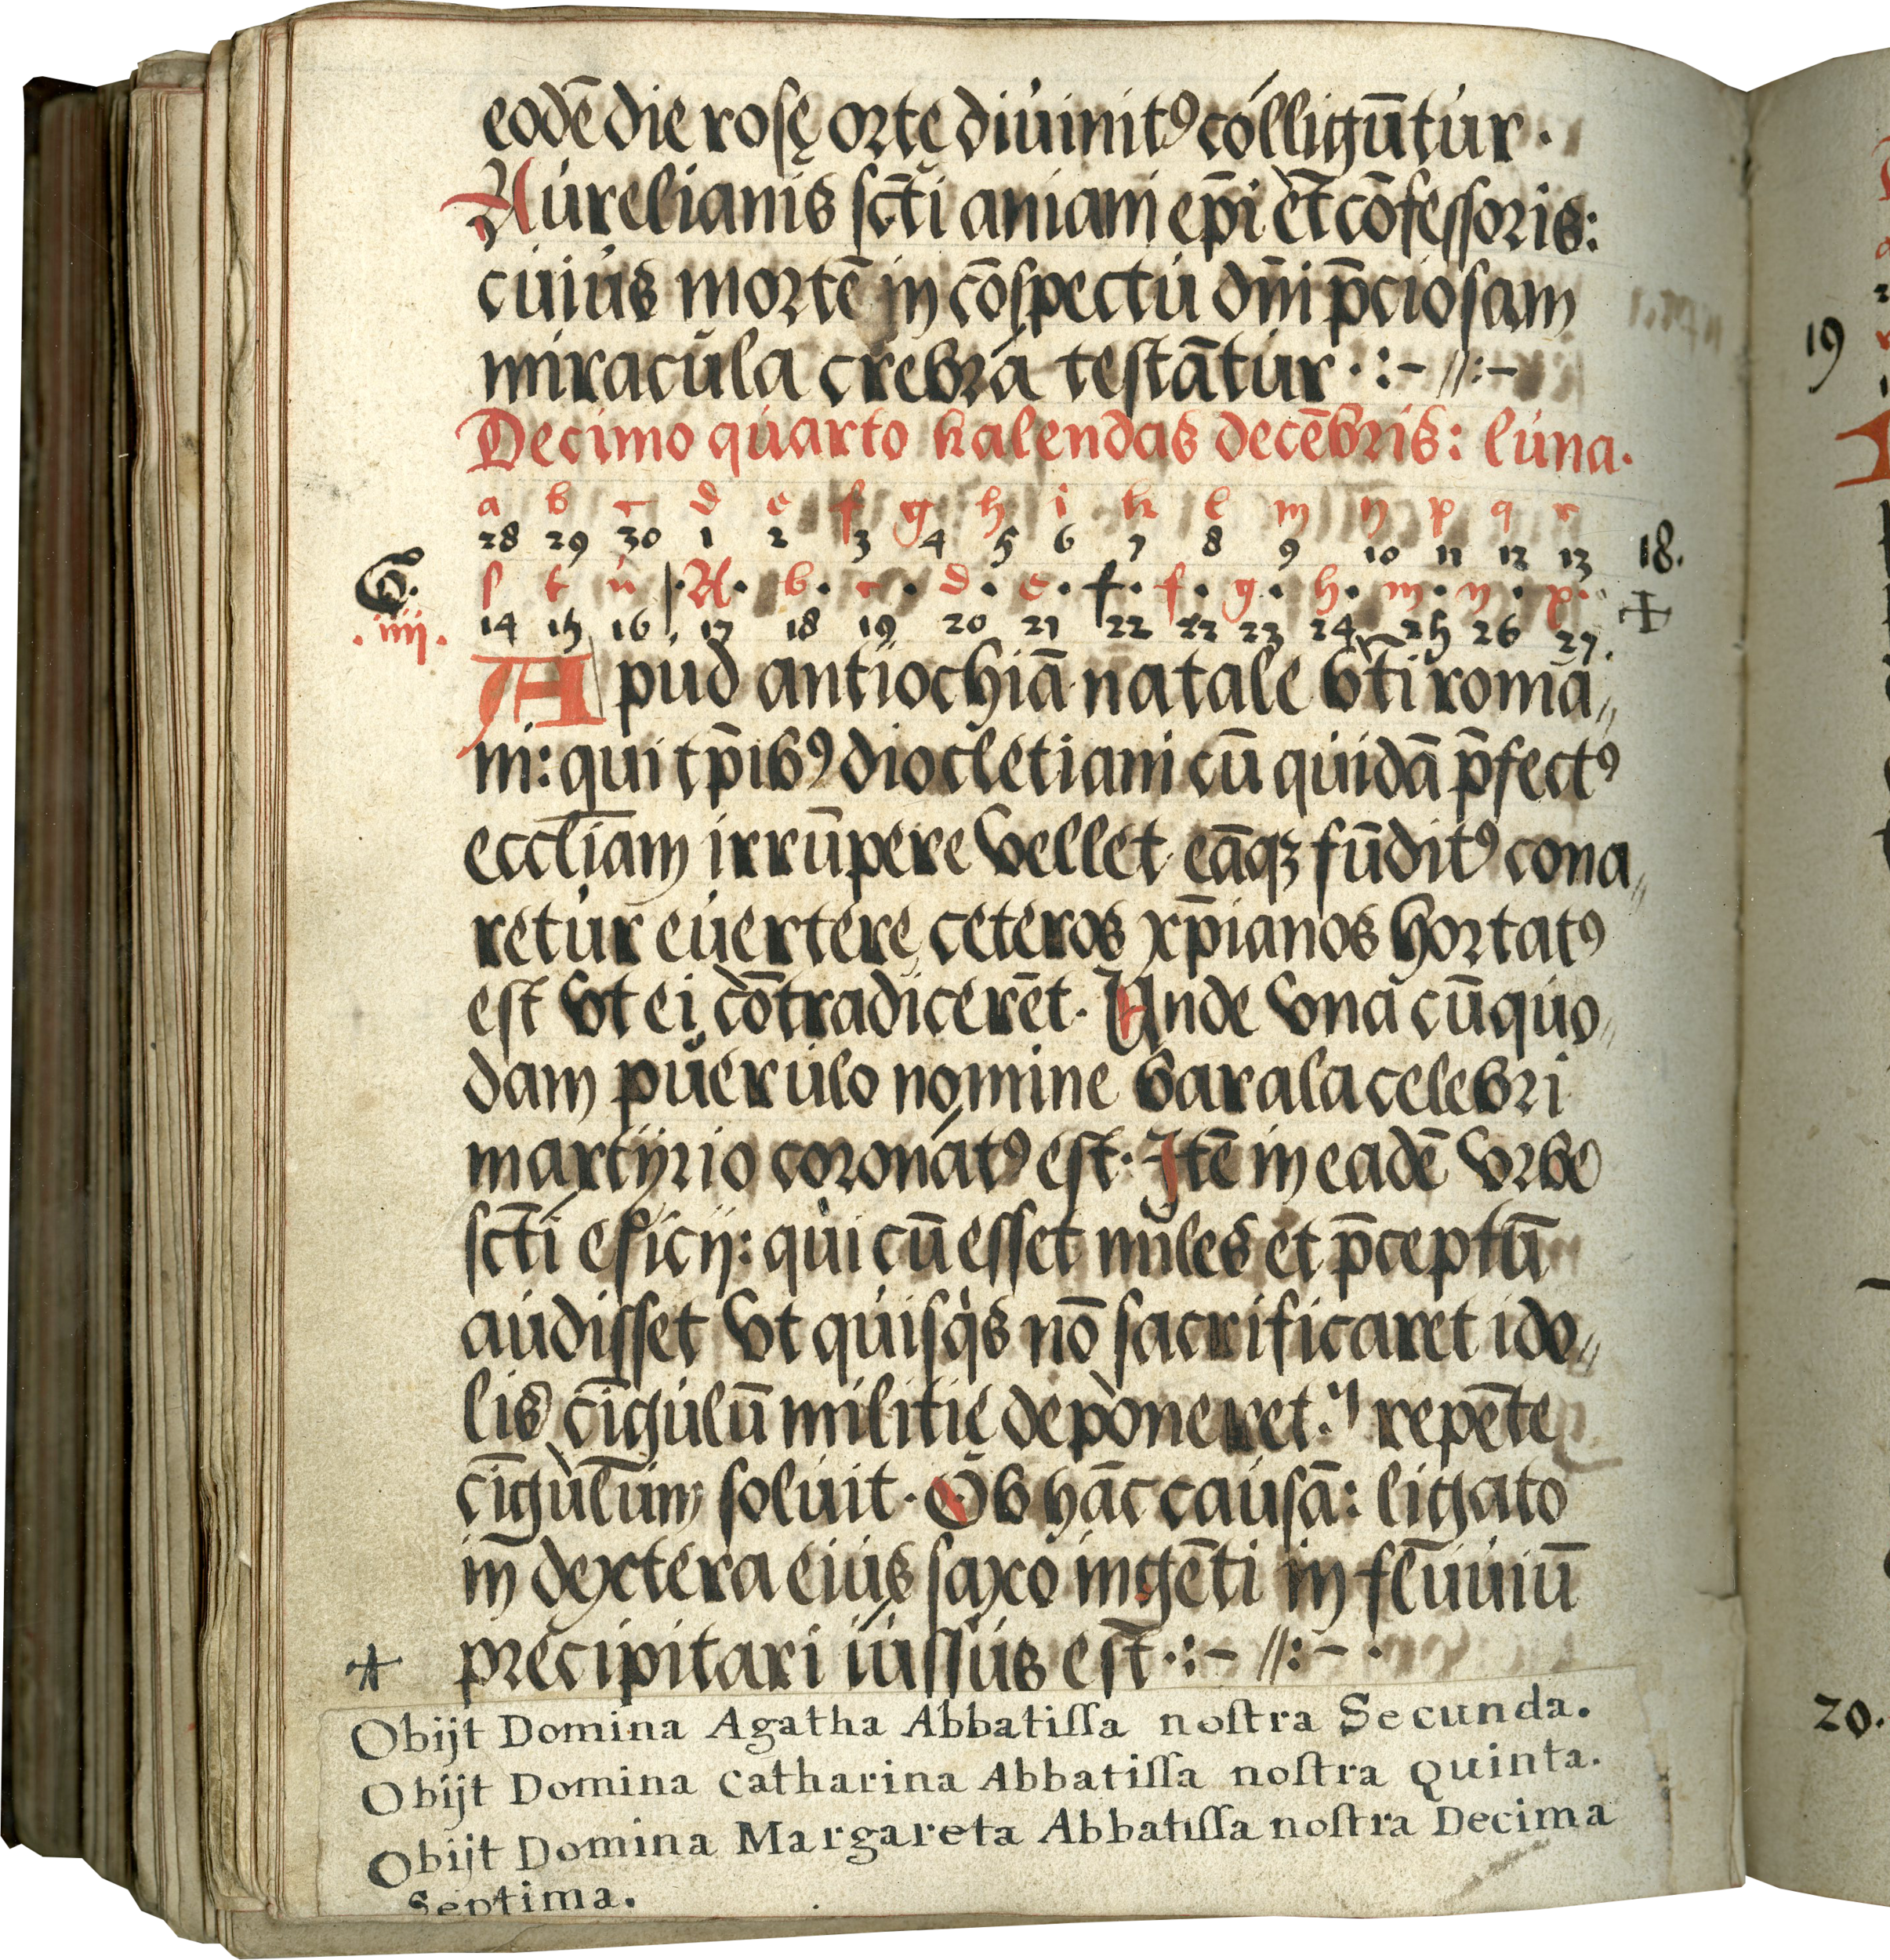 eodē die rosę ortę diuinitꝰ colligūtur ·
Aurelianis sc̄ti aniani ep̄i et cōfessoris:
cuius mortē in cōspectu dn̄i p̄ciosam
miracula crebra testātur · :- //:-
Decimo quarto kalendas decēbris: luna.
a b c d e f g h i k l m n p q r
28 29 30 1 2 3 4 5 6 7 8 9 10 11 12 13 18.
G. s t u ·A· b · c · d · e · f · f · g · h · m · n · p ·
.iiij. 14 15 16 17 18 19 20 21 22 22 23 24 25 26 27.
Apud antiochiā natale bt̄i roma„
ni: qui tp̄ibꝰ diocletiani cū quidā p̄fectꝰ
eccl̄iam irrūpere vellet eāqꝫ fūditꝰ cona„
retur euertere ceteros xp̄ianos hortatꝰ
est vt ei cōtradicerēt. Unde vna cū quo„
dam puerulo nomine barala celebri
martÿrio coronatꝰ est. Itē in eadē vrbe
sc̄ti esicij: qui cū esset miles et p̄ceptū
audisset vt quisq̇s nō sacrificaret ido„
lis cīgulū militię deponeret. repēte
cīgulum soluit. Ob hāc causā: ligato
in dextera eius saxo ingēti in fluuiū
precipitari iussus est ·:- //:- ·
Obijt Domina Agatha Abbatiſſa noſtra Secunda.
Obijt Domina Catharina Abbatiſſa noſtra Quinta.
Obijt Domina Margareta Abbatiſſa noſtra Decima
Septima.
19
20.